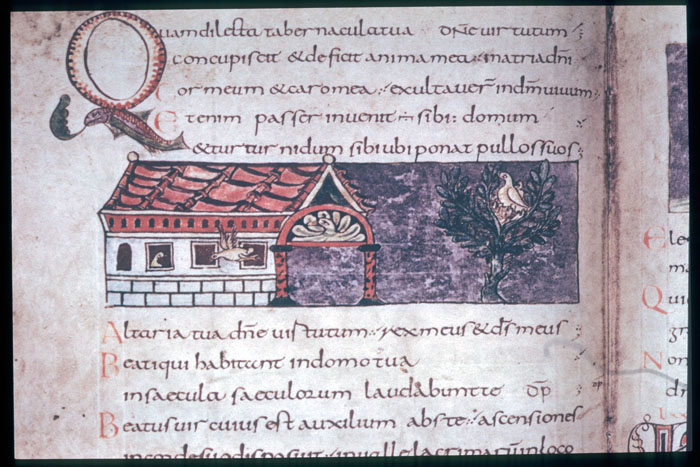 Quam dilecta tabernacula tua dne uirtutum
concupiscit & deficit anima mea: in atria dni
Cor meum & caro mea: exultauer indm uiuum
Etenim passer inuenit sibi: domum
& turtur nidum sibi ubi ponat pullos suos
Altaria tua dne uirtutum: rex meus & ds meus
Beati qui habitant in domo tua
in saecula saeculorum laudabunt te DP
Beatus uir cuius est auxilium abs te: ascensiones
in corde suo disposuit in ualle lacrimarum in loco